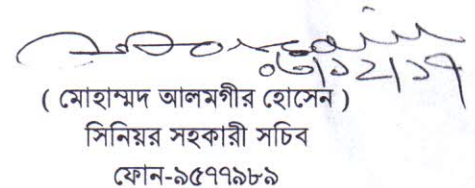 ০৬/১২/১৭
( মোহাম্মদ আলমগীর হোসেন )
সিনিয়র সহকারী সচিব
ফোন-৯৫৭৭৯৮৯